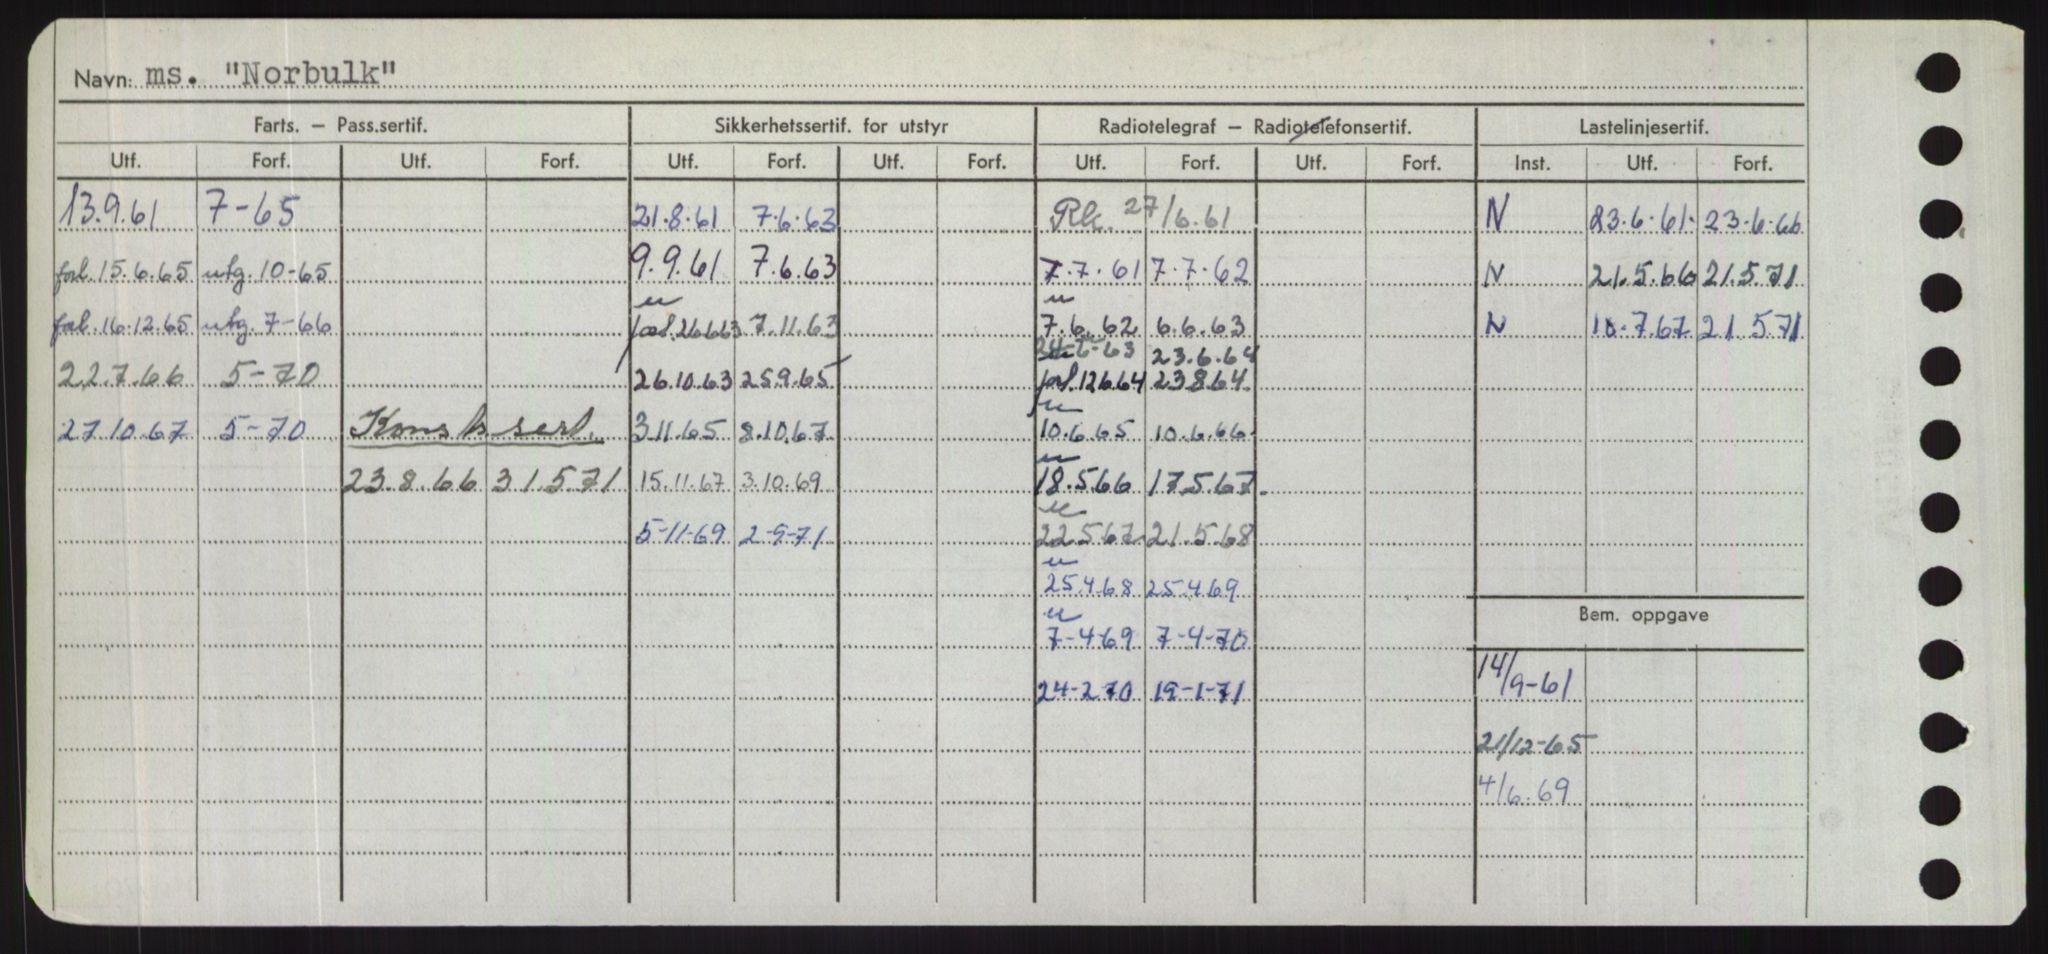 Navn: ms. "Norbulk"
Farts. – Pass.sertif. Sikkerhetssertif. for utstyr Radiotelegraf – Radiotelefonsertif. Lastelinjesertif.
Utf. Forf. Utf. Forf. Utf. Forf. Utf. Forf. Utf. Forf. Utf. Forf. Inst. Utf. Forf.
13.9.61 7-65 21.8.61 7.6.63 Rk. 27/6.61 N 23.6.61. 23.6.66
forl. 15.6.65 utg. 10-65 9.9.61 7.6.63 7.7.61 7.7.62 N 21.5.66 21.5.71
u u
forl. 16.12.65 utg. 7-66 forl. 26663 7.11.63 7.6.62 6.6.63 N 10.7.67 21.5.71
24-6-63 23.6.64
22.7.66 5-70 26.10.63 25.9.65 forl. 12664 23864.
u
27.10.67 5-70 Konstr.sert. 3.11.65 8.10.67 10.6.65 10.6.66
u
23.8.66 31.5.71 15.11.67 3.10.69 18.5.66 17.5.67.
u
5-11-69 2-9-71 22.5.67 21.5.68
u
25.4.68 25.4.69
u
Bem. oppgave
7-4-69 7-4-70
14/9-61
24-2-70 19-1-71
21/12-65
4/6.69